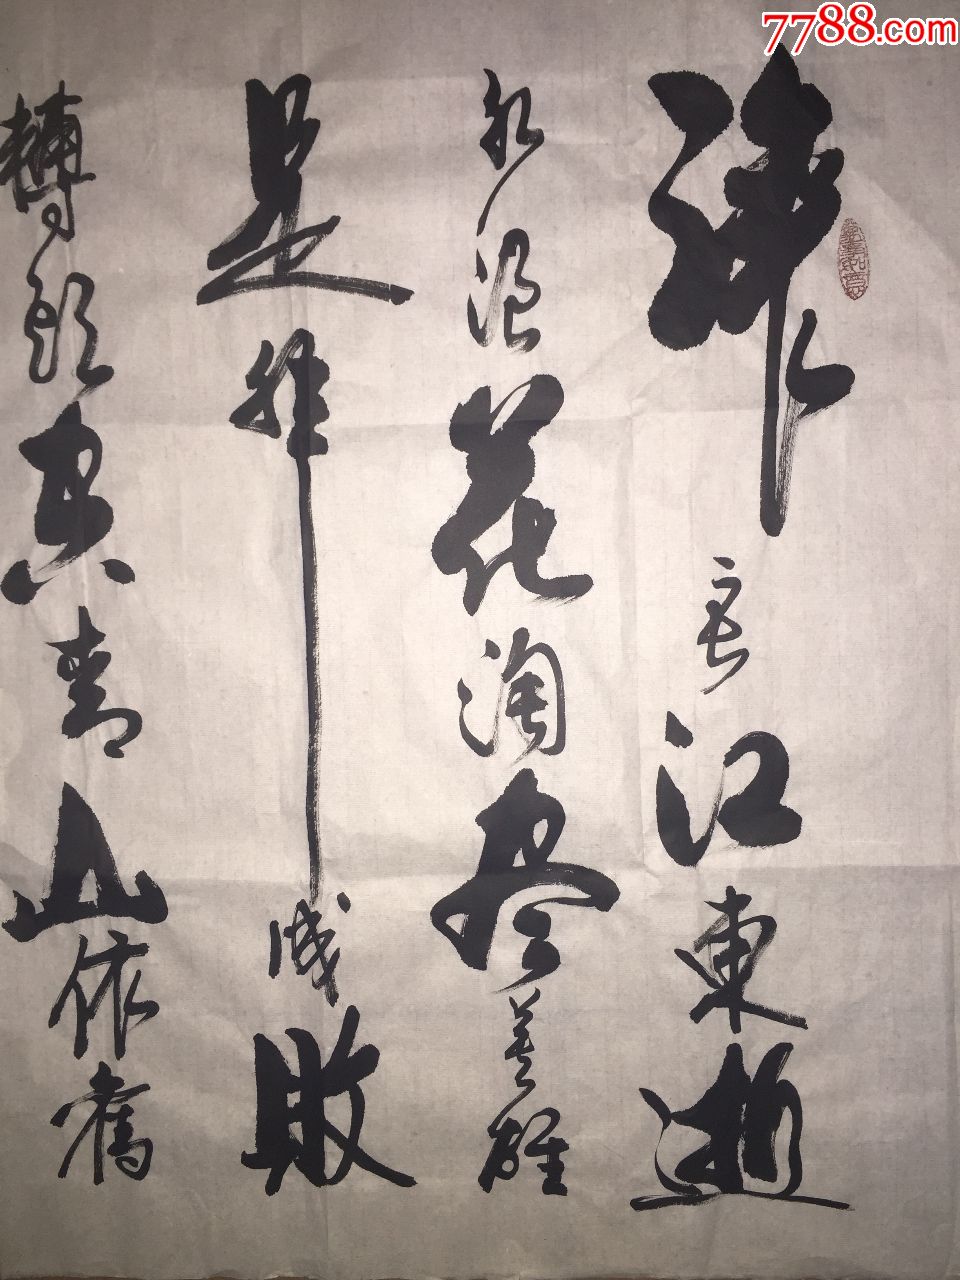 7788.com
滚々長江東逝
水浪花淘尽英雄
是非成敗
轉頭空青山依舊